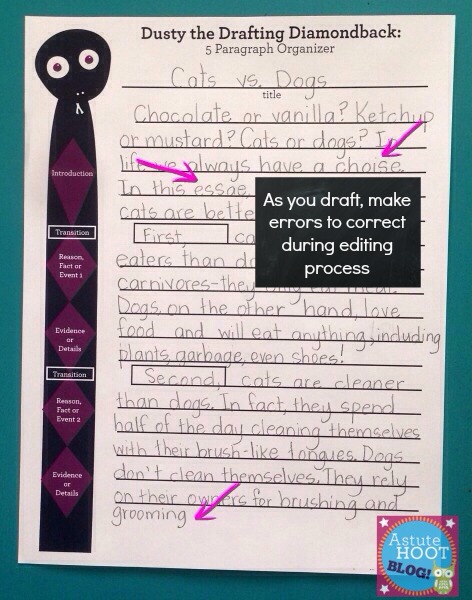 Dusty the Drafting Diamondback:
5 Paragraph Organizer
Cats vs. Dogs
title
Chocolate or vanilla? Ketchup
or mustard? Cats or dogs? In
life we always have a choise.
In this essae,
cats are bette
First, ca
eaters than do
carnivores-they only eat meat.
Dogs, on the other hand, love
food and will eat anything, including
plants, garbage, even shoes!
Second, cats are cleaner
than dogs. In fact, they spend
half of the day cleaning themselves
with their brush-like tongues. Dogs
don't clean themselves. They rely
on their owners for brushing and
grooming
Introduction
Transition
Reason,
Fact or
Event 1
Evidence
or
Details
Transition
Reason,
Fact or
Event 2
Evidence
or
Details
As you draft, make
errors to correct
during editing
process
Astute
HOOT
BLOG!